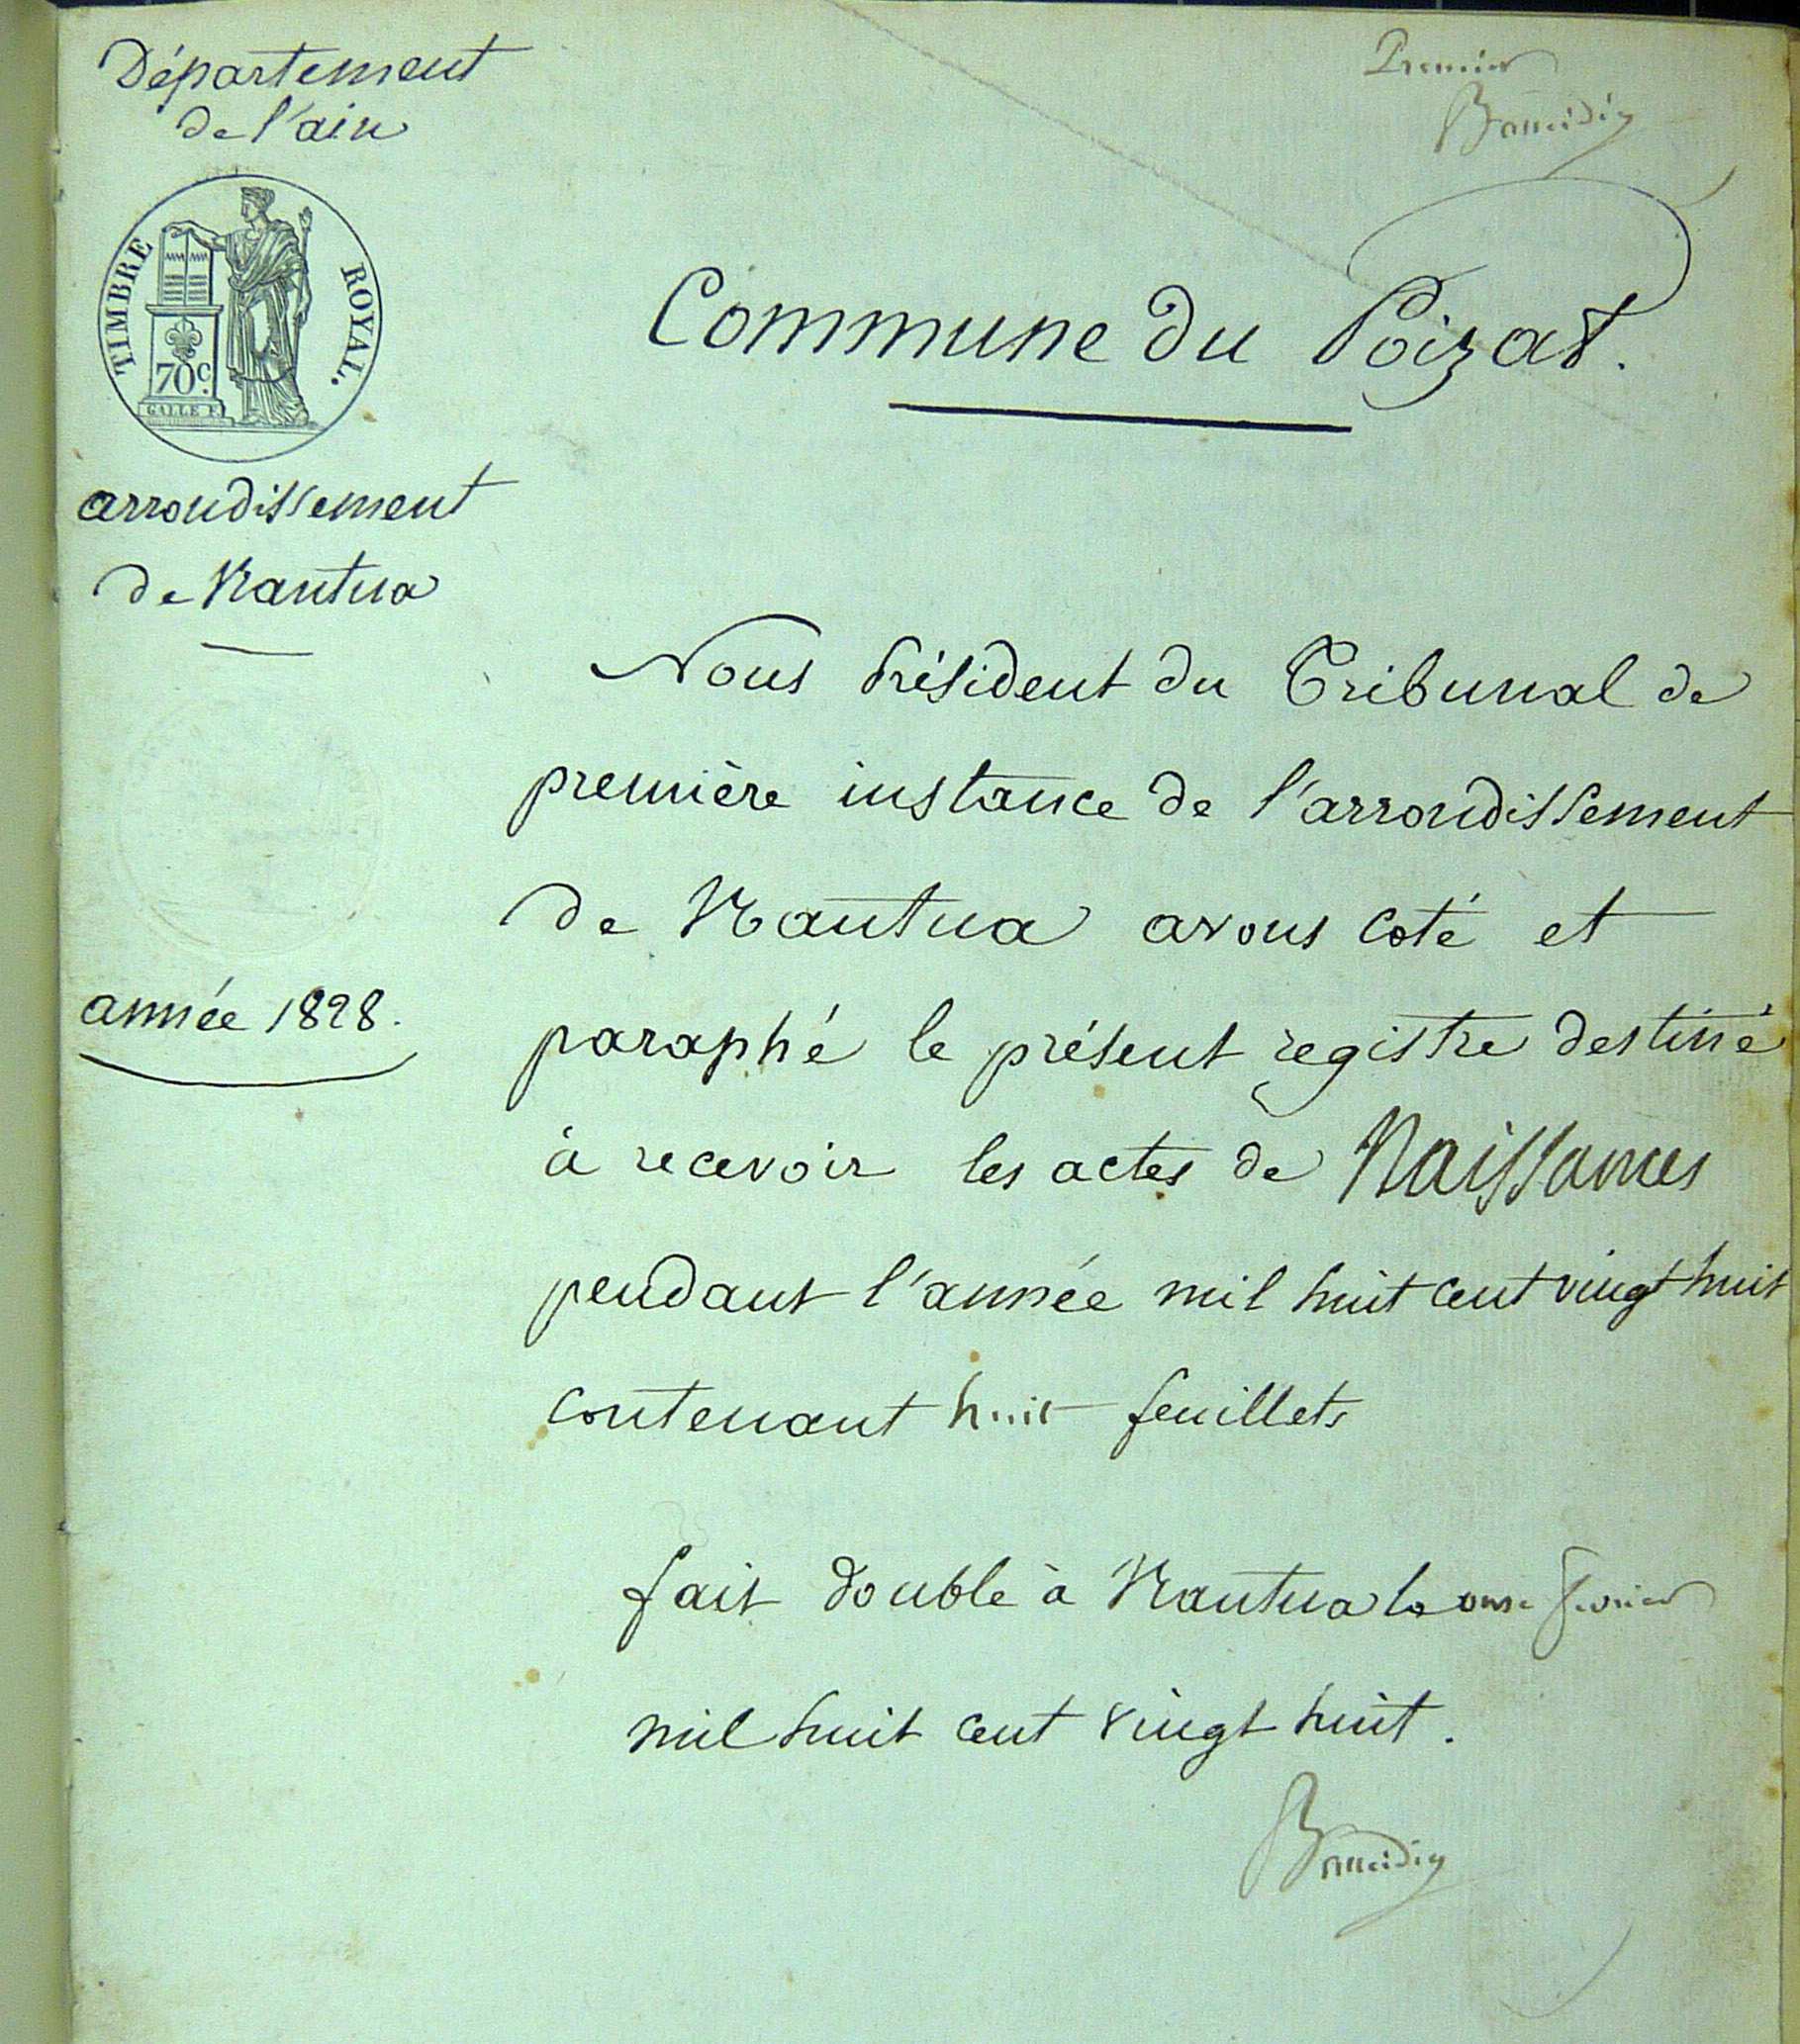 Département
de l'ain
Premier
TIMBRE ROYAL.
70c.
GALLE F.
Commune du Poizat.
arrondissement
de Nantua
Nous Président du Tribunal de
première instance de l'arrondissement
de Nantua avons coté et
année 1828.
paraphé le présent registre destiné
à recevoir les actes de Naissances
pendant l'année mil huit cent vingt huit
contenant huit feuillets
fait double à Nantua le onze fevrier
mil huit cent vingt huit.